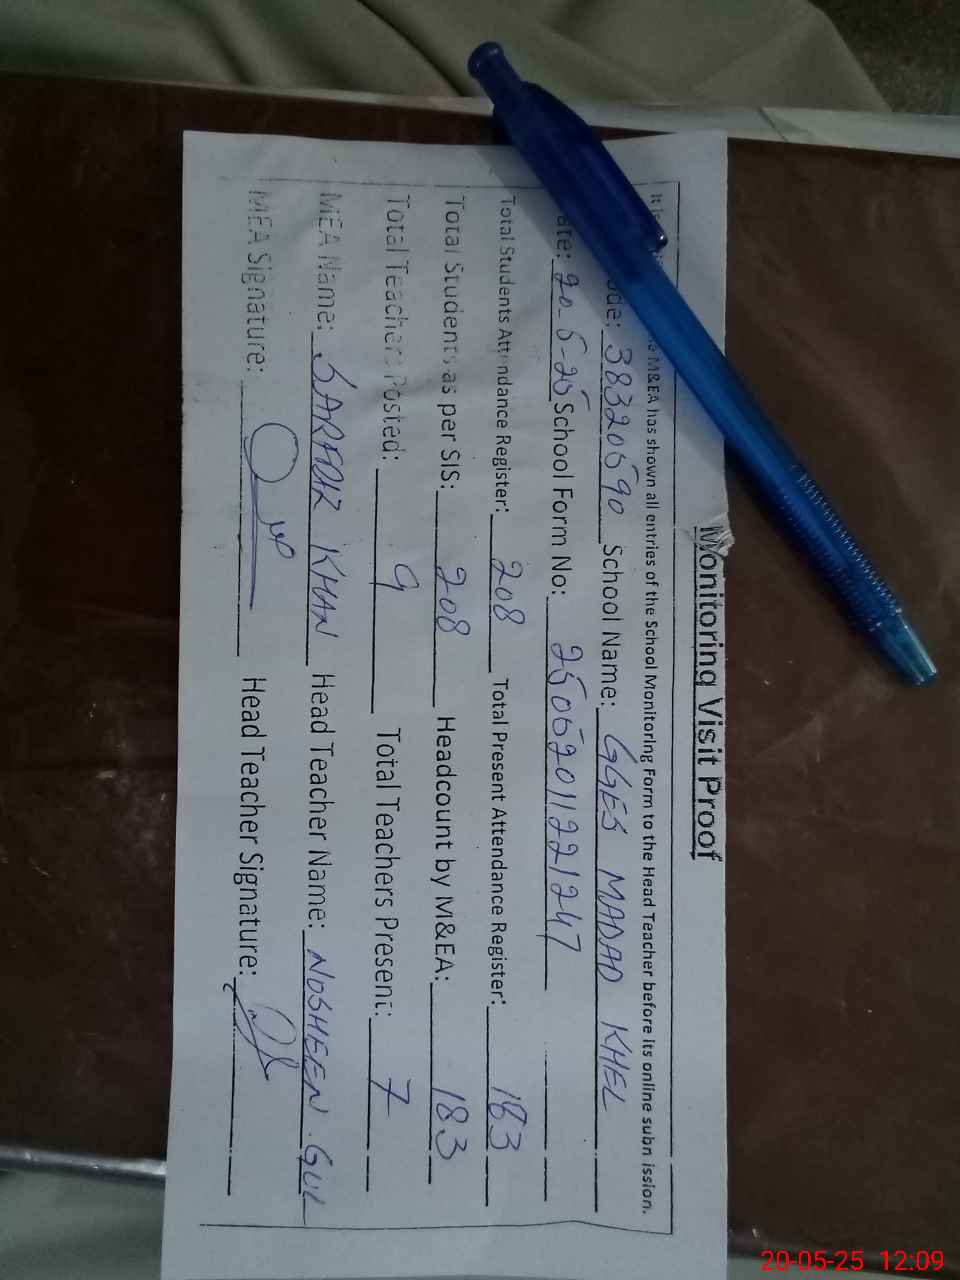 Monitoring Visit Proof
It is M&EA has shown all entries of the School Monitoring Form to the Head Teacher before its online subn ission.
ode: 38320590 School Name: GGES MADAD KHEL
ate: 20-5-25 School Form No: 25052011221247
Total Students Attendance Register: 208 Total Present Attendance Register: 183
Total Students as per SIS: 208 Headcount by M&EA: 183
Total Teachers Posted: 9 Total Teachers Present: 7
MEA Name: SARFDIZ KHAN Head Teacher Name: NOSHEEN. GUL
MEA Signature: Head Teacher Signature:
20-05-25 12:09